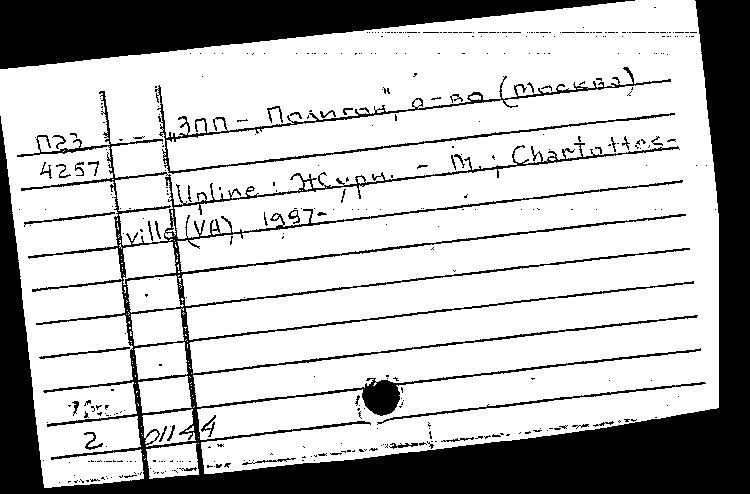 П23 "ЗПП – „Полигон", о-во (Москва)
4257
Upline : Журн. – М. ; Charlottes-
ville (VA), 1997-
2 01144